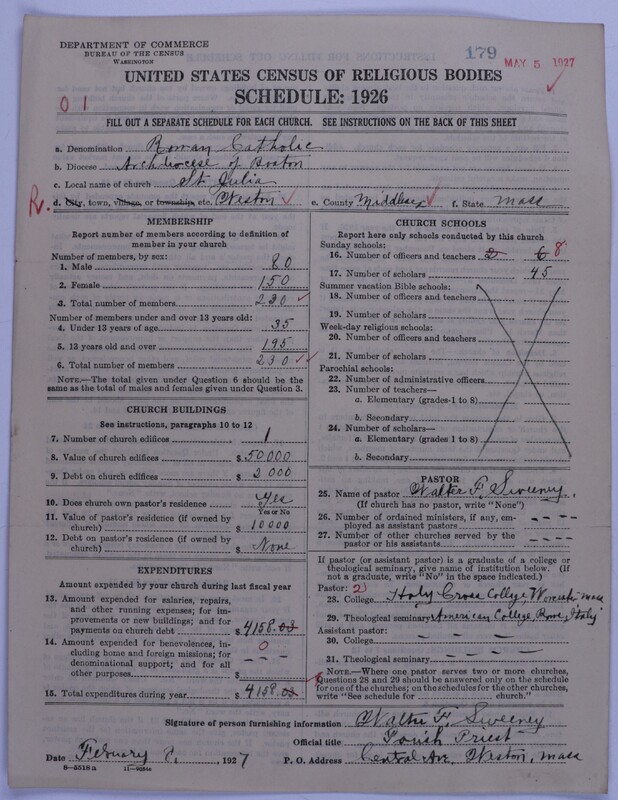 DEPARTMENT OF COMMERCE
BUREAU OF THE CENSUS
WASHINGTON
179
MAY 5 1927
UNITED STATES CENSUS OF RELIGIOUS BODIES
SCHEDULE: 1926
01
FILL OUT A SEPARATE SCHEDULE FOR EACH CHURCH. SEE INSTRUCTIONS ON THE BACK OF THIS SHEET
a. Denomination Roman Catholic
b. Diocese Archdiocese of Boston
c. Local name of church St Julia
R. d. City, town, village, or township, etc. Weston e. County Middlesex f. State Mass
MEMBERSHIP
Report number of members according to definition of
member in your church
Number of members, by sex:
1. Male 80
2. Female 150
3. Total number of members 230
Number of members under and over 13 years old:
4. Under 13 years of age 35
5. 13 years old and over 195
6. Total number of members 230
NOTE.—The total given under Question 6 should be the
same as the total of males and females given under Question 3.
CHURCH BUILDINGS
See instructions, paragraphs 10 to 12
7. Number of church edifices 1
8. Value of church edifices $ 50000
9. Debt on church edifices $ 2000
10. Does church own pastor's residence Yes
Yes or No
11. Value of pastor's residence (if owned by
church) $ 10000
12. Debt on pastor's residence (if owned by
church) $ None
EXPENDITURES
Amount expended by your church during last fiscal year
13. Amount expended for salaries, repairs,
and other running expenses; for im-
provements or new buildings; and for
payments on church debt $ 4158.00
14. Amount expended for benevolences, in-
cluding home and foreign missions; for
denominational support; and for all
other purposes $ 0 - - -
15. Total expenditures during year $ 4158.00
CHURCH SCHOOLS
Report here only schools conducted by this church
Sunday schools:
16. Number of officers and teachers 2 6 8
17. Number of scholars 45
Summer vacation Bible schools:
18. Number of officers and teachers
19. Number of scholars
Week-day religious schools:
20. Number of officers and teachers
21. Number of scholars
Parochial schools:
22. Number of administrative officers
23. Number of teachers—
a. Elementary (grades 1 to 8)
b. Secondary
24. Number of scholars—
a. Elementary (grades 1 to 8)
b. Secondary
PASTOR
25. Name of pastor Walter F. Sweeney.
(If church has no pastor, write "None")
26. Number of ordained ministers, if any, em-
ployed as assistant pastors - - - -
27. Number of other churches served by the
pastor or his assistants - - - -
If pastor (or assistant pastor) is a graduate of a college or
theological seminary, give name of institution below. (If
not a graduate, write "No" in the space indicated.)
Pastor: 2
28. College Holy Cross College, Worcester Mass
29. Theological seminary American College, Rome, Italy
Assistant pastor:
30. College - - -
31. Theological seminary - - -
NOTE.—Where one pastor serves two or more churches,
Questions 28 and 29 should be answered only on the schedule
for one of the churches; on the schedules for the other churches,
write "See schedule for church."
Signature of person furnishing information Walter F. Sweeney
Official title Parish Priest
Date February 8, 1927 P. O. Address Central Ave, Weston, Mass
8-5518a